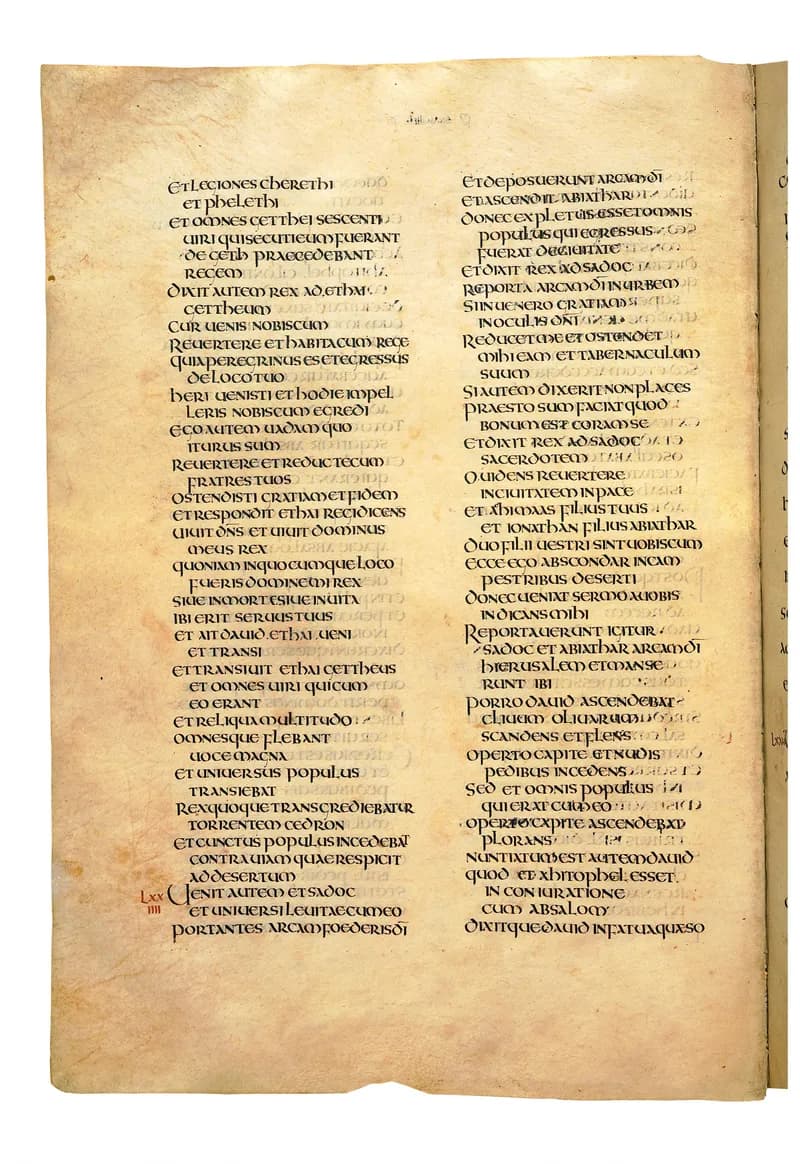 ET LEGIONES CHERETHI
ET PHELETHI
ET OMNES GETTHEI SESCENTI
UIRI QUI SECUTI EUM FUERANT
DE GETH PRAECEDEBANT
REGEM
DIXIT AUTEM REX AD ETHAI
GETTHEUM
CUR UENIS NOBISCUM
REUERTERE ET HABITA CUM REGE
QUIA PEREGRINUS ES ET EGRESSUS
DE LOCO TUO
HERI UENISTI ET HODIE IMPEL
LERIS NOBISCUM EGREDI
EGO AUTEM UADAM QUO
ITURUS SUM
REUERTERE ET REDUC TECUM
FRATRES TUOS
OSTENDISTI GRATIAM ET FIDEM
ET RESPONDIT ETHAI REGI DICENS
UIUIT DN̄S ET UIUIT DOMINUS
MEUS REX
QUONIAM IN QUOCUMQUE LOCO
FUERIS DOMINE MI REX
SIUE IN MORTE SIUE IN UITA
IBI ERIT SERUUS TUUS
ET AIT DAUID ETHAI UENI
ET TRANSI
ET TRANSIUIT ETHAI GETTHEUS
ET OMNES UIRI QUI CUM
EO ERANT
ET RELIQUA MULTITUDO
OMNESQUE FLEBANT
UOCE MAGNA
ET UNIUERSUS POPULUS
TRANSIEBAT
REX QUOQUE TRANSGREDIEBATUR
TORRENTEM CEDRON
ET CUNCTUS POPULUS INCEDEBAT
CONTRA UIAM QUAE RESPICIT
AD DESERTUM
LXX
IIII
UENIT AUTEM ET SADOC
ET UNIUERSI LEUITAE CUM EO
PORTANTES ARCAM FOEDERIS D̄I
ET DEPOSUERUNT ARCAM D̄I
ET ASCENDIT ABIATHAR
DONEC EXPLETUS ESSET OMNIS
POPULUS QUI EGRESSUS
FUERAT DE CIUITATE
ET DIXIT REX AD SADOC
REPORTA ARCAM D̄I IN URBEM
SI INUENERO GRATIAM
IN OCULIS DN̄I
REDUCET ME ET OSTENDET
MIHI EAM ET TABERNACULUM
SUUM
SI AUTEM DIXERIT NON PLACES
PRAESTO SUM FACIAT QUOD
BONUM EST CORAM SE
ET DIXIT REX AD SADOC
SACERDOTEM
O UIDENS REUERTERE
IN CIUITATEM IN PACE
ET AHIMAAS FILIUS TUUS
ET IONATHAN FILIUS ABIATHAR
DUO FILII UESTRI SINT UOBISCUM
ECCE EGO ABSCONDAR IN CAM
PESTRIBUS DESERTI
DONEC UENIAT SERMO A UOBIS
INDICANS MIHI
REPORTAUERUNT IGITUR
SADOC ET ABIATHAR ARCAM D̄I
HIERUSALEM ET MANSE
RUNT IBI
PORRO DAUID ASCENDEBAT
CLIUUM OLIUARUM
SCANDENS ET FLENS
OPERTO CAPITE ET NUDIS
PEDIBUS INCEDENS
SED ET OMNIS POPULUS
QUI ERAT CUM EO
OPERTO CAPITE ASCENDEBAT
PLORANS
NUNTIATUM EST AUTEM DAUID
QUOD ET AHITOPHEL ESSET
IN CONIURATIONE
CUM ABSALOM
DIXITQUE DAUID INFATUA QUAESO